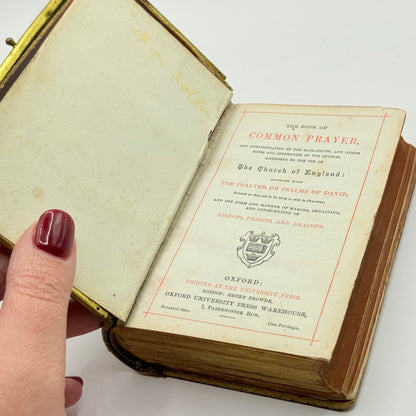 THE BOOK OF
COMMON PRAYER,
AND ADMINISTRATION OF THE SACRAMENTS, AND OTHER
RITES AND CEREMONIES OF THE CHURCH,
ACCORDING TO THE USE OF
The Church of England:
TOGETHER WITH
THE PSALTER OR PSALMS OF DAVID,
Pointed as they are to be sung or said in Churches;
AND THE FORM AND MANNER OF MAKING, ORDAINING,
AND CONSECRATING OF
BISHOPS, PRIESTS, AND DEACONS.
OXFORD:
PRINTED AT THE UNIVERSITY PRESS.
LONDON: HENRY FROWDE,
OXFORD UNIVERSITY PRESS WAREHOUSE,
7, PATERNOSTER ROW.
Cum Privilegio.